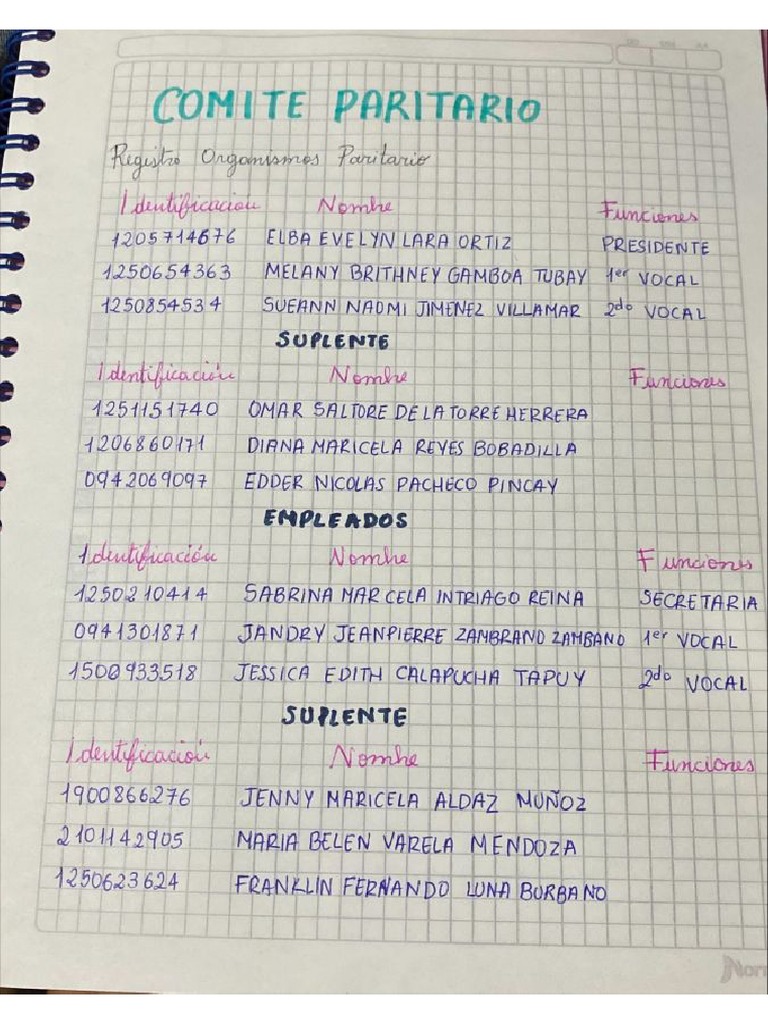 COMITE PARITARIO
Registro Organismos Paritario
Identificación Nombre Funciones
1205714676 ELBA EVELYN LARA ORTIZ PRESIDENTE
1250654363 MELANY BRITHNEY GAMBOA TUBAY 1er VOCAL
1250854534 SUEANN NAOMI JIMENEZ VILLAMAR 2do VOCAL
SUPLENTE
Identificación Nombre Funciones
1251151740 OMAR SALTORE DE LA TORRE HERRERA
1206860171 DIANA MARICELA REYES BOBADILLA
0942069097 EDDER NICOLAS PACHECO PINCAY
EMPLEADOS
Identificación Nombre Funciones
1250210414 SABRINA MARCELA INTRIAGO REINA SECRETARIA
0941301871 JANDRY JEANPIERRE ZAMBRANO ZAMBANO 1er VOCAL
1500933518 JESSICA EDITH CALAPUCHA TAPUY 2do VOCAL
SUPLENTE
Identificación Nombre Funciones
1900866276 JENNY MARICELA ALDAZ MUÑOZ
2101142905 MARIA BELEN VARELA MENDOZA
1250623624 FRANKLIN FERNANDO LUNA BURBANO